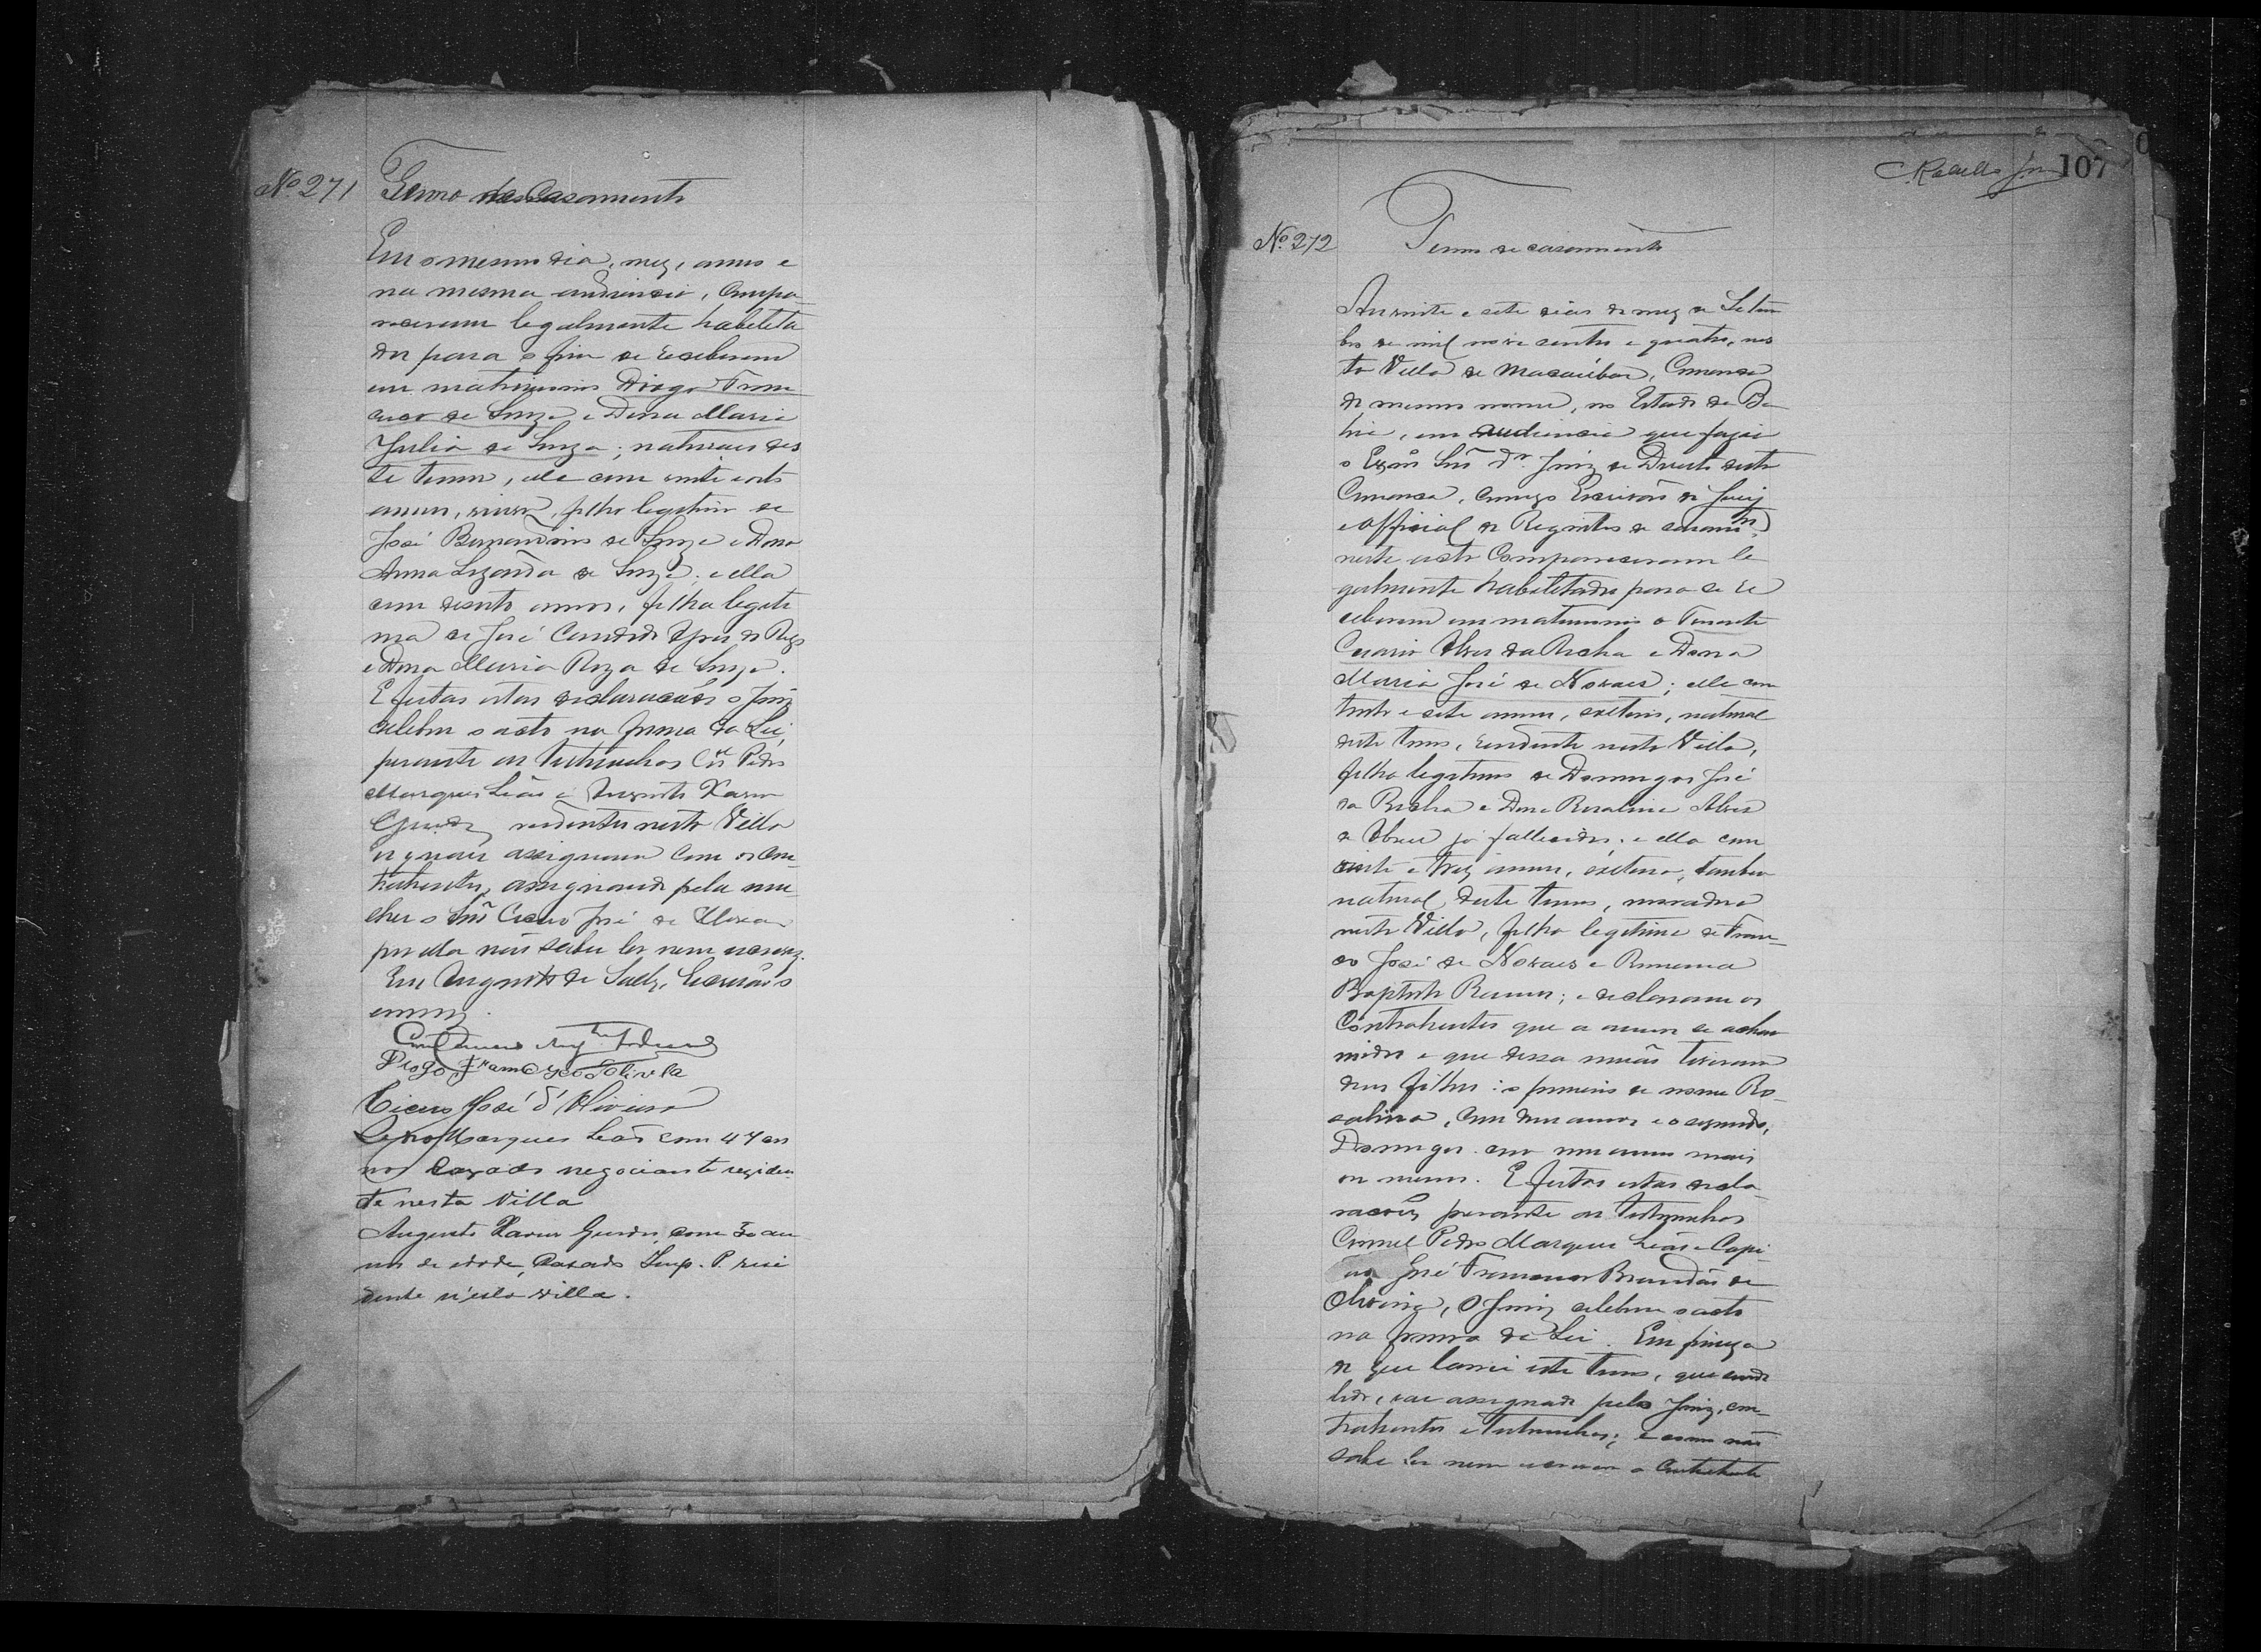 Nº 271
Termo de Casamento
Em o mesmo dia, mez, anno e
na mesma audiencia, compa-
receram legalmente habelita
dos para o fim de receberem
em matrimonio Diogo Fran
cisco de Souza e Dona Maria
Julia de Souza; naturaes des
te termo, elle com vinte e oito
annos, viuvo, filho legitimo de
José Bernardino de Souza e Dona
Anna de Souza; e ella
com desoito annos, filha legiti
ma de José Candido do Rego
e Dona Maria Roza de Souza.
E feitas estas declaracões o Juiz
celebrou o acto na forma da Lei,
perante as testemunhas Cel Pedro
Marques Leão e Augusto Xavier
Guedes residentes nesta Villa
os quaes assignaram com os con-
trahentes, assignando pela mu-
lher o Snr Cicero José de
por ella não saber ler nem escrever.
Eu Augusto de Escrivão o
escrevi.
Diogo Francisco
Cicero José d'Oliveira
Pedro Marques Leão com 47 an
nos Cazado negociante reziden
te nesta Villa
Augusto Xavier Guedes, com 30 an
nos de idade, Casado Emp. P. resi
dente n'esta villa.
Rabello Jor 107
Nº 272
Termo de casamento
Aos vinte e sete dias do mez de Setem
bro de mil nove centos e quatro, nes
ta Villa de Macaúbas, Comarca
do mesmo nome, no Estado da Ba
hia, em audiencia que fazia
o Exmº Snr Dr. Juiz de Direito desta
Comarca, commigo Escrivão de
e official do Registro de casamtos
neste acto Compareceram le
galmente habelitados para se re
ceberem em matrimonio o Tenente
Cesario Alves da Rocha e Dona
Maria José de Novaes; elle com
trinta e sete annos, solteiro, natural
deste termo, residente nesta Villa,
filho legitimo de Domingos José
da Rocha e Dona Rosalina Alves
de Abreu já fallecidos; e ella com
vinte e trez annos, solteira, tambem
natural deste termo, moradora
nesta Villa, filha legitima de Fran-
co José de Novaes e
Baptista Ramos; e declararam os
Contrahentes que a annos se acham
unidos e que dessa união tiveram
dous filhos: o primeiro de nome Ro-
salina, com dous annos e o segundo,
Domingos com um anno mais
ou menos. E feitas estas decla-
racões perante as testemunhas
Coronel Pedro Marques Leão e Capi
tão José Francisco Brandão de
Oliveira, o Juiz celebrou o acto
na forma da Lei. Em firmeza
do que lavrei este termo, que sendo
lido, vae assignado pelo Juiz, con-
trahentes e testemunhas; e como não
sabe ler nem escrever a Contrahente